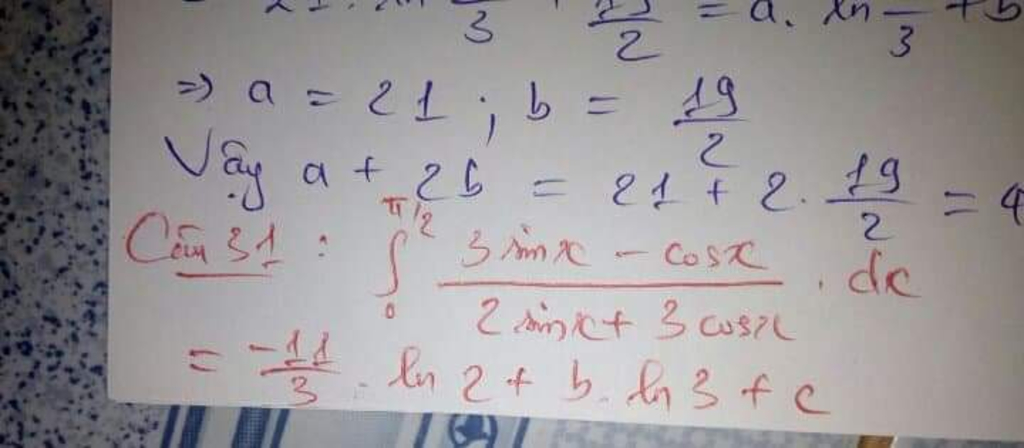 21. ln /3 + 19/2 = a. ln /3 + b
=> a = 21 ; b = 19/2
Vậy a + 2b = 21 + 2. 19/2 = 4
Câu 31 : ∫₀^(π/2) (3 sinx - cosx)/(2 sinx + 3 cosx) . dx
= -11/3 . ln 2 + b. ln 3 + c